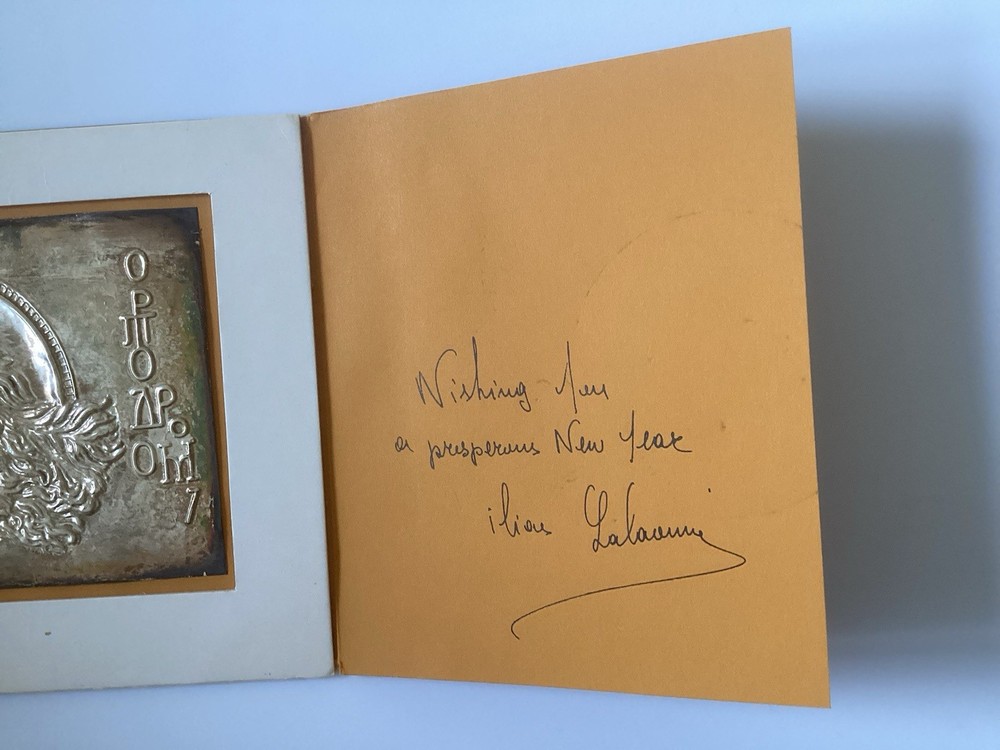 Ο
Ρ
Π
Ο
ΔΡ
Ο
Wishing you
a prosperous New Year
ilias Lalaounis